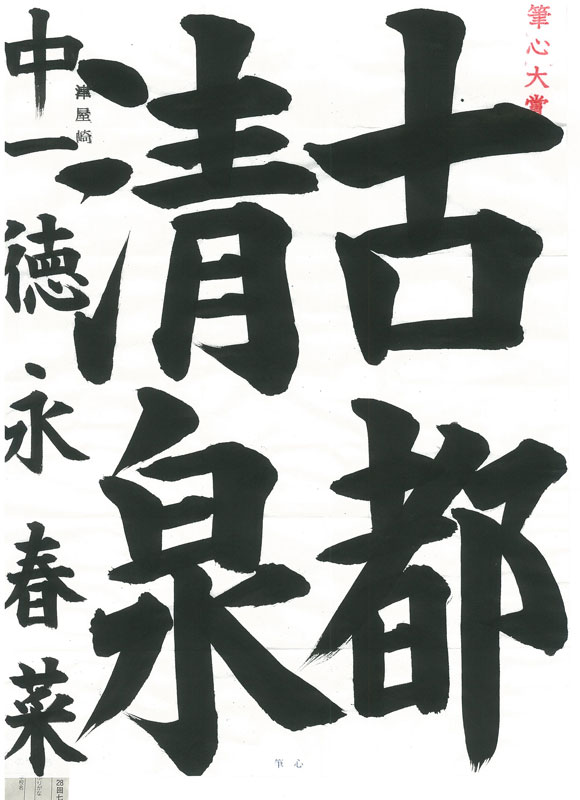 筆心大賞
古都
清泉
津屋崎
中一 徳永春菜
筆心
28回七